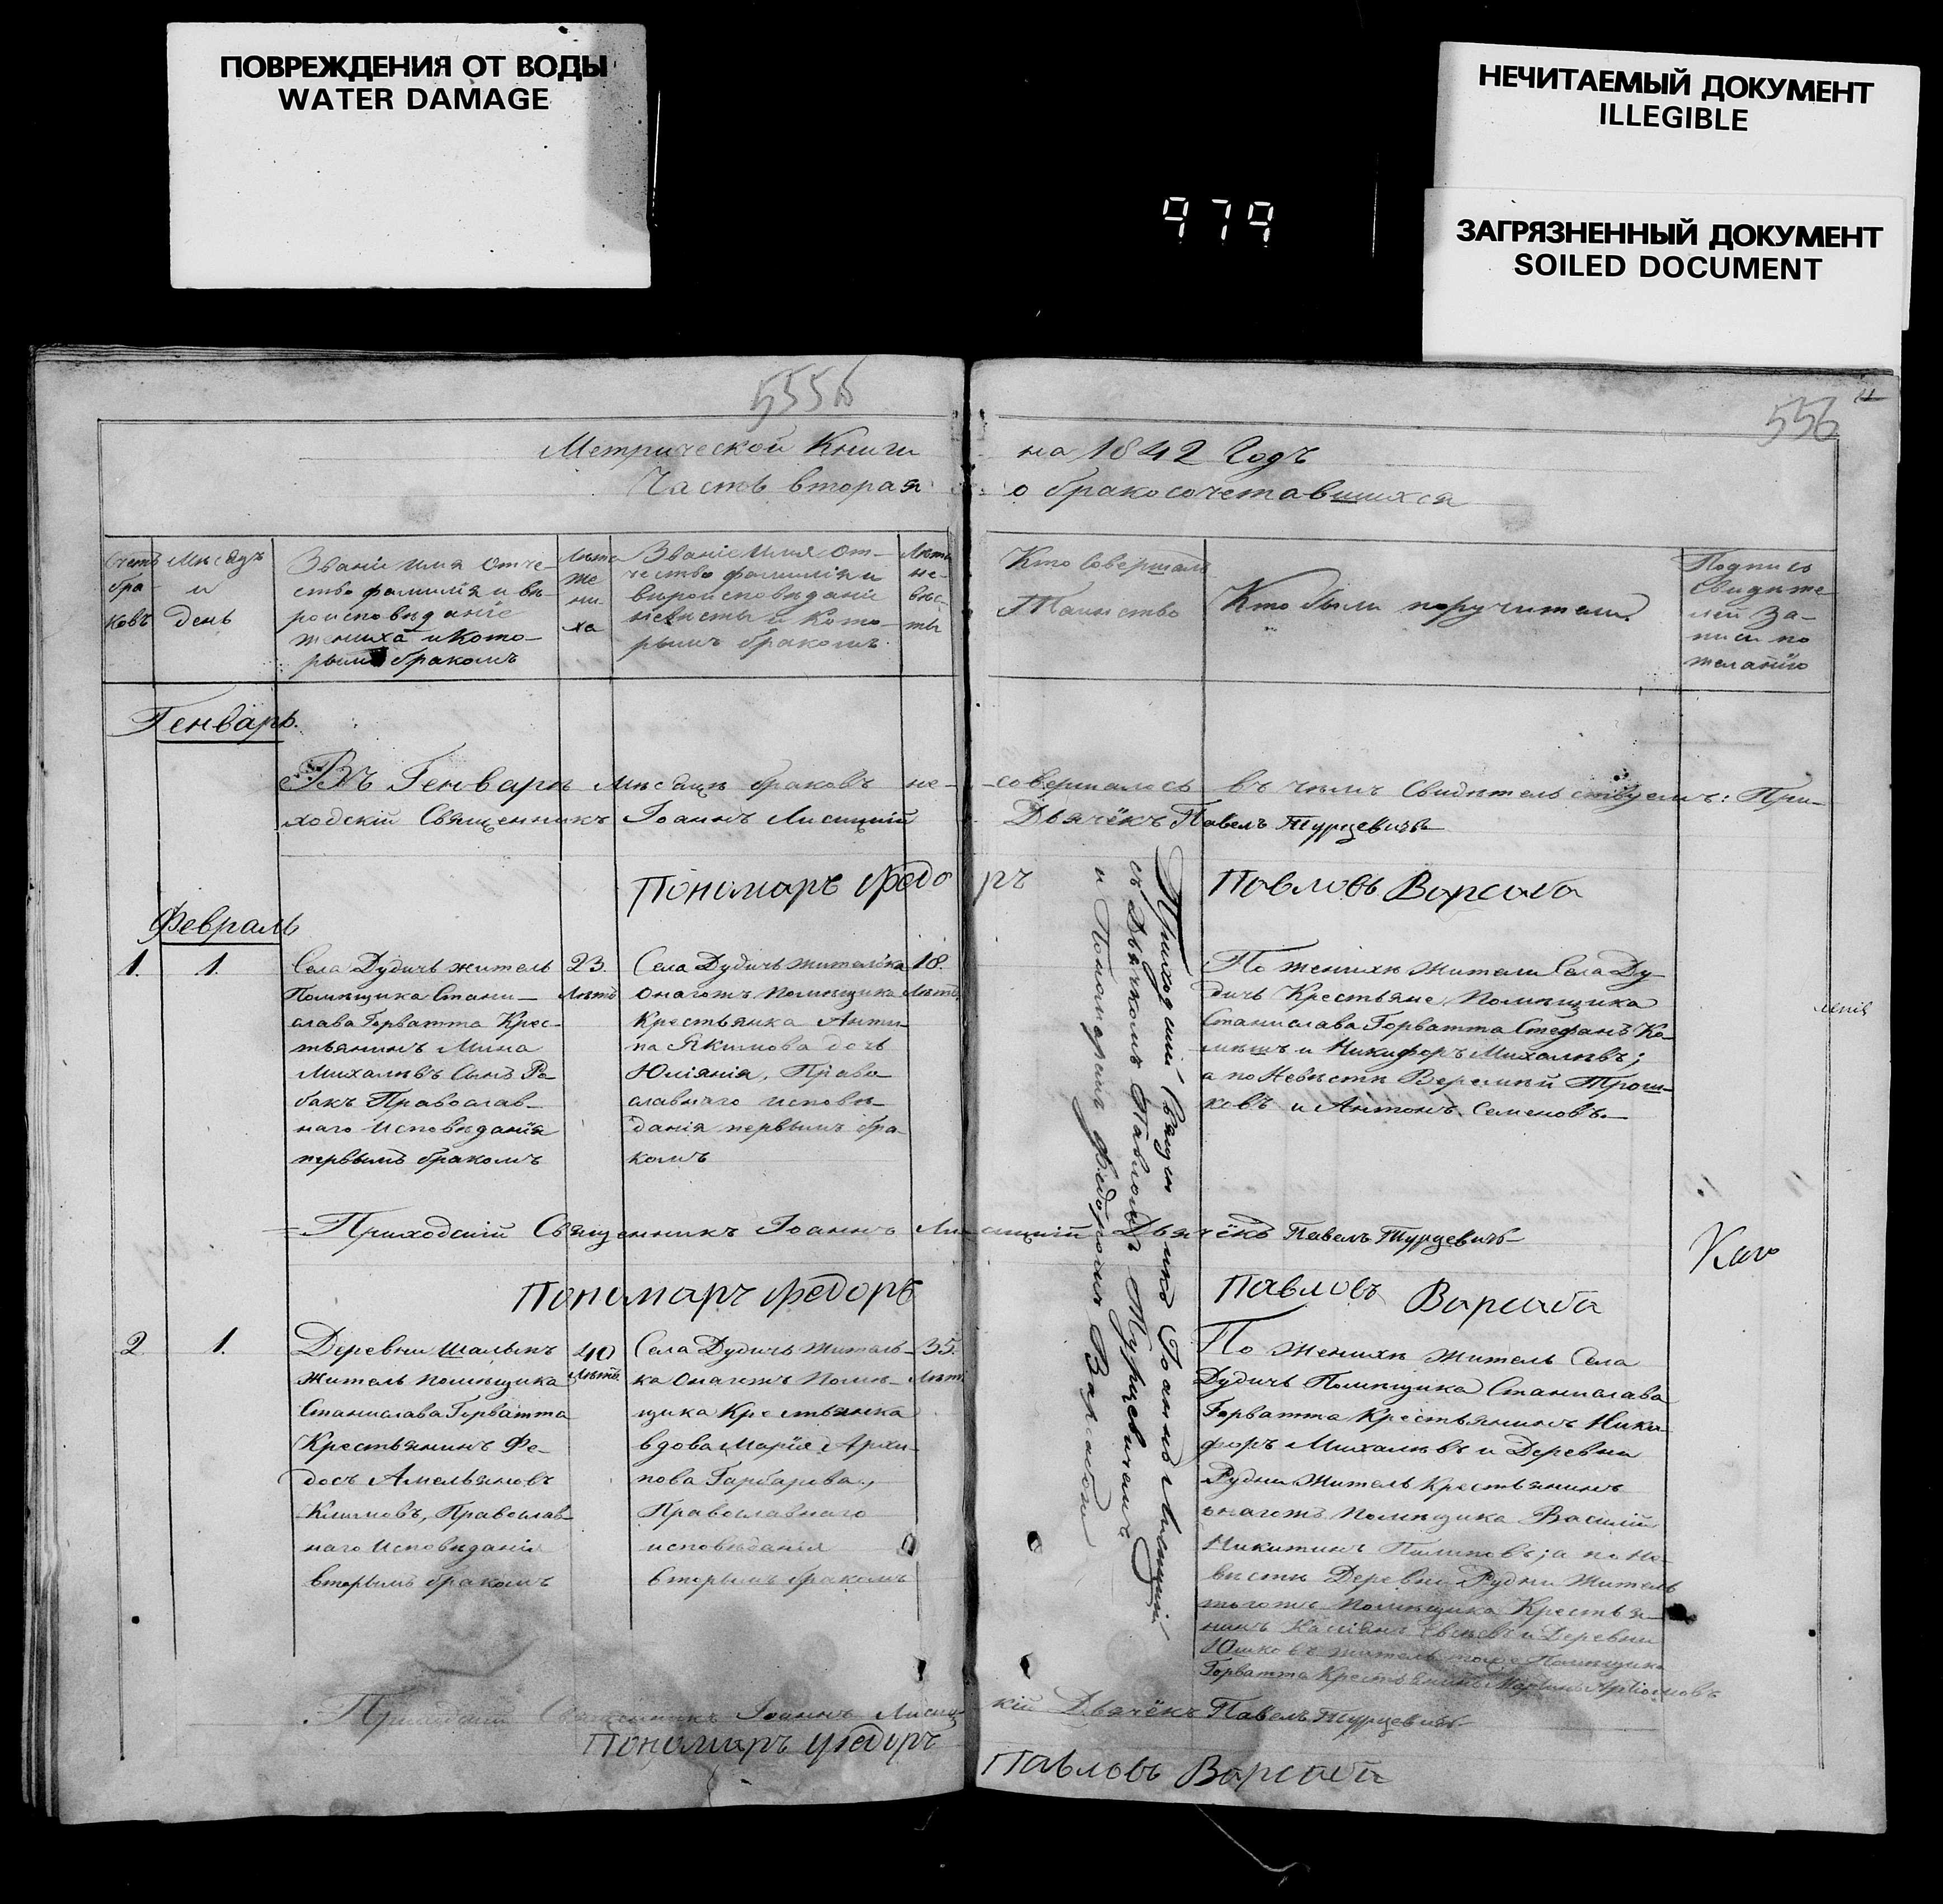 ПОВРЕЖДЕНИЯ ОТ ВОДЫ
WATER DAMAGE
НЕЧИТАЕМЫЙ ДОКУМЕНТ
ILLEGIBLE
ЗАГРЯЗНЕННЫЙ ДОКУМЕНТ
SOILED DOCUMENT
979
556
Метрической Книги на 1842 Годъ
Часть вторая о бракосочетавшихся
Счетъ браковъ
Мѣсяцъ и день
Званіе имя отче-
ство фамилія и вѣ-
роисповѣданіе
жениха и кото-
рымъ бракомъ
Лѣта
же-
ни-
ха
Званіе имя от-
чество фамилія и
вѣроисповѣданіе
невѣсты и кото-
рымъ бракомъ
Лѣта
не-
вѣс-
ты
Кто совершалъ
Таинство
Кто были поручители
Подпись
свидѣте-
лей за-
писи по
желанію
Генварь.
Въ Генварѣ мѣсяцѣ браковъ не-совершалось въ чемъ свидѣтельствуемъ: При-
ходскій Священникъ Іоаннъ Лисицкій Дьячёкъ Павелъ Турцевичъ
Пономарь Федоръ Павловъ Варсаба
Февраль
1. 1.
Села Дудичъ житель
Помѣщика Стани-
слава Горватта Крес-
тьянинъ Мина
Михалѣвъ Сынъ Ра-
бакъ Православ-
наго Исповѣданія
первымъ бракомъ
23.
Лѣтъ
Села Дудичъ жителька
Онагожъ Помѣщика
Крестьянка Анти-
па Якимова дочь
Юліянія, Право-
славнаго исповѣ-
данія первымъ бра-
комъ
18.
Лѣтъ
Приходскій Священникъ Іоаннъ Лисицкій
съ Дьячкомъ Павломъ Турцевичемъ
и Пономаремъ Федоромъ Варсабою
По женихѣ жители Села Ду-
дичъ Крестьяне Помѣщика
Станислава Горватта Стефанъ Ка-
и Никифоръ Михалѣвъ;
а по Невѣстѣ Веремѣй Трош-
ковъ и Антонъ Семеновъ
Приходскій Священникъ Іоаннъ Лисицкій Дьячёкъ Павелъ Турцевичъ
Пономарь Федоръ Павловъ Варсаба
2 1.
Деревни
житель помѣщика
Станислава Горватта
Крестьянинъ Фе-
досъ Амельяновъ
Климовъ, Православ-
наго Исповѣданія
вторымъ бракомъ
40
Лѣтъ
Села Дудичъ житель-
ка Онагожъ Помѣ-
щика Крестьянка
вдова Марія Архи-
пова Гарбарева,
Православнаго
исповѣданія
вторымъ бракомъ
35.
Лѣтъ
По женихѣ житель Села
Дудичъ Помѣщика Станислава
Горватта Крестьянинъ Ники-
форъ Михалѣвъ и Деревни
Рудни житель Крестьянинъ
онагожъ Помѣщика Василій
Никитинъ а по Не-
вѣстѣ Деревни Рудни житель
тогожъ Помѣщика Крестья-
нинъ и Деревни
житель тогоже Помѣщика
Горватта Крестьянинъ Мартинъ Артіомовъ
Приходскій Священникъ Іоаннъ Лисицкій Дьячёкъ Павелъ Турцевичъ
Пономарь Федоръ Павловъ Варсаба